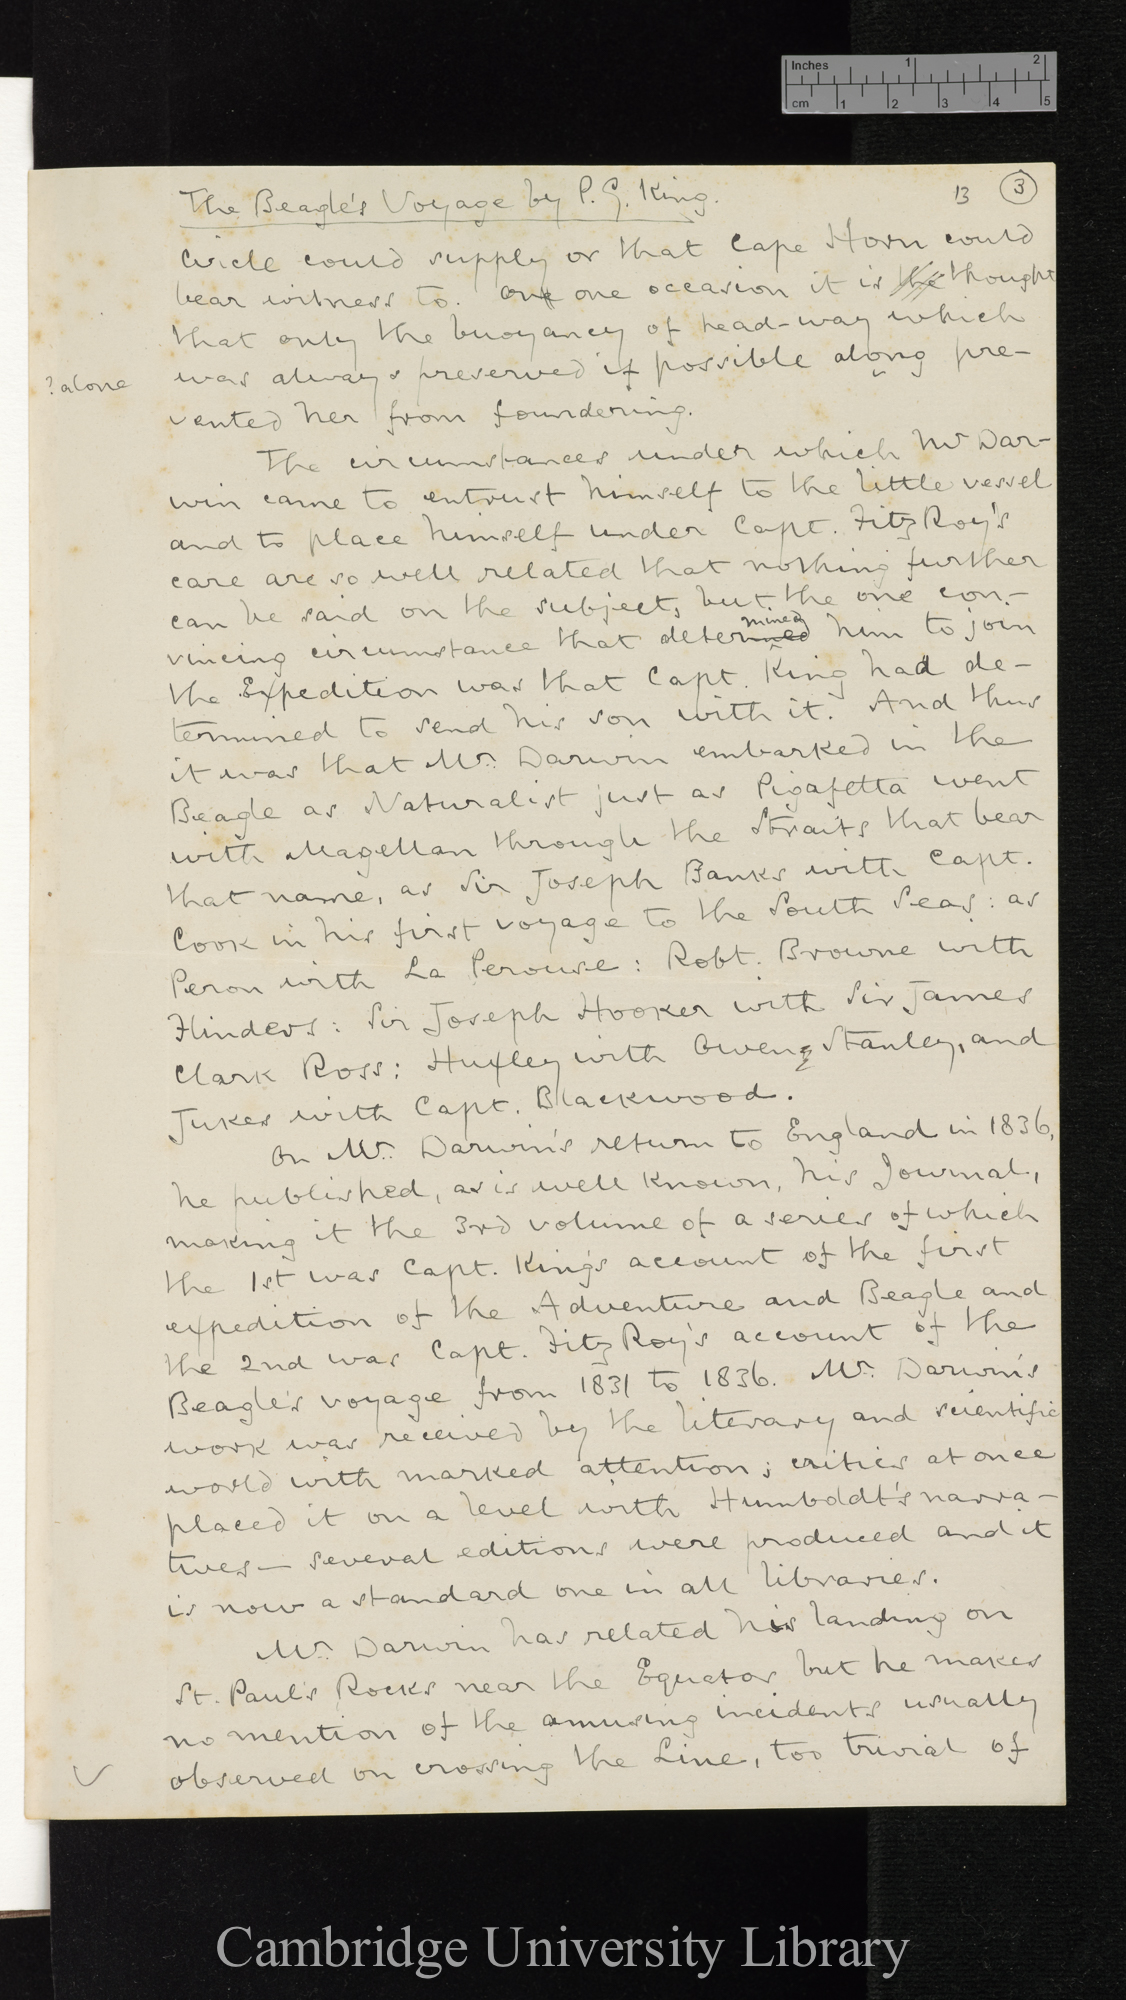 Inches 1 2
cm 1 2 3 4 5
The Beagle's Voyage by P. G. King. 13 3
circle could supply or that Cape Horn could
bear witness to. One one occasion it is the thought
that only the buoyancy of head-way which
was always preserved if possible along pre-
?alone
vented her from foundering.
The circumstances under which Mr Dar-
win came to entrust himself to the little vessel
and to place himself under Capt. FitzRoy's
care are so well related that nothing further
can be said on the subject, but the one con-
mined
vincing circumstance that deterined him to join
the Expedition was that Capt. King had de-
termined to send his son with it. And thus
it was that Mr. Darwin embarked in the
Beagle as Naturalist just as Pigafetta went
with Magellan through the Straits that bear
that name, as Sir Joseph Banks with Capt.
Cook in his first voyage to the South Seas: as
Peron with La Perouse: Robt. Browne with
Flinders: Sir Joseph Hooker with Sir James
Clark Ross: Huxley with Owen Stanley, and
Jukes with Capt. Blackwood.
On Mr. Darwin's return to England in 1836,
he published, as is well known, his Journal,
making it the 3rd volume of a series of which
the 1st was Capt. King's account of the first
expedition of the Adventure and Beagle and
the 2nd was Capt. FitzRoy's account of the
Beagle's voyage from 1831 to 1836. Mr. Darwin's
work was received by the literary and scientific
world with marked attention; critics at once
placed it on a level with Humboldt's narra-
tives— several editions were produced and it
is now a standard one in all libraries.
Mr. Darwin has related his landing on
St. Paul's Rocks near the Equator but he makes
no mention of the amusing incidents usually
observed on crossing the Line, too trivial of
Cambridge University Library